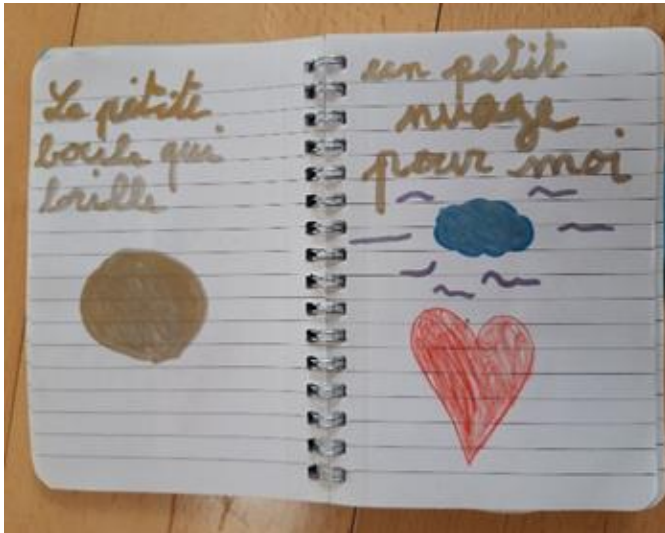 La petite
boule qui
brille
un petit
nuage
pour moi